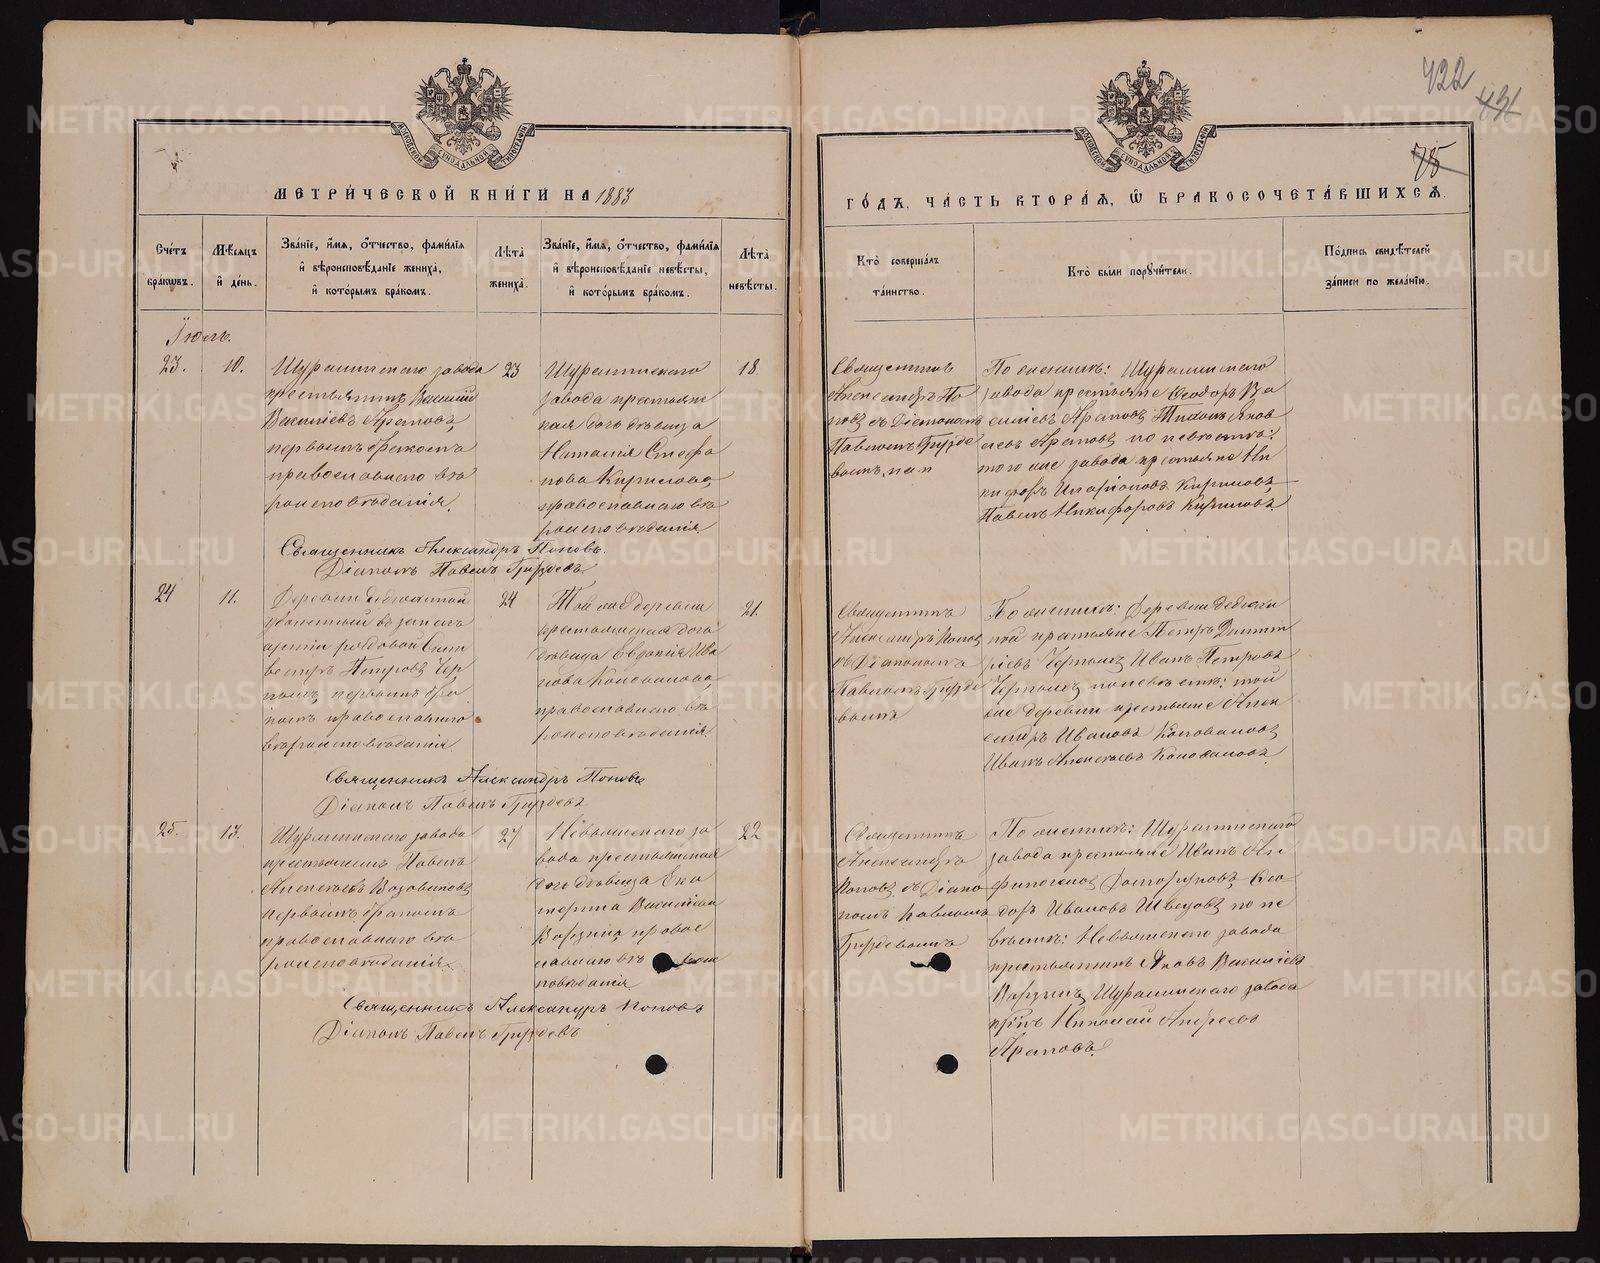 422
436
75
МОСКОВСКОЙ СУНОДАЛЬНОЙ ТИПОГРАФІИ
МОСКОВСКОЙ СУНОДАЛЬНОЙ ТИПОГРАФІИ
МЕТРИ́ЧЕСКОЙ КНИ́ГИ НА 1883
ГО́ДЪ, ЧА́СТЬ ВТОРА́Я, Ѡ БРАКОСОЧЕТА́ВШИХСЯ.
Сче́тъ бра́кѡвъ.
Мѣ́сяцъ и҆ де́нь.
Зва́нїе, и҆́мя, ѻ҆́тчество, фами́лїя и҆ вѣроисповѣ́данїе жениха̀, и҆ кото́рымъ бра́комъ.
Лѣ́та жениха̀.
Зва́нїе, и҆́мя, ѻ҆́тчество, фами́лїя и҆ вѣроисповѣ́данїе невѣ́сты, и҆ кото́рымъ бра́комъ.
Лѣ́та невѣ́сты.
Кто̀ соверша́лъ та́инство.
Кто̀ бы́ли порꙋчи́тели.
По́дпись свидѣ́телей за́писи по жела́нїю.
Іюль.
23.
10.
Шуралинскаго завода
крестьянинъ Василій
Васильевъ Араповъ,
первымъ бракомъ
православнаго вѣ
роисповѣданія.
23
Шуралинскаго
завода крестьян
ская дочь дѣвица
Наталія Стефа
нова Кирилова,
православнаго вѣ
роисповѣданія.
18.
Священникъ
Александръ По
повъ съ Діакономъ
Павломъ Груздѣ
вымъ
По женихѣ: Шуралинскаго
завода крестьяне Ѳеодоръ Ва
сильевъ Араповъ Яков
левъ Араповъ по невѣстѣ:
того же завода крестьяне Ни
кифоръ Иларіоновъ Кириловъ,
Павелъ Никифоровъ Кириловъ.
Священникъ Александръ Поповъ.
Діаконъ Павелъ Груздевъ.
24
11.
Деревни
уволенный въ запасъ
арміи рядовой Силь
вестръ Петровъ Чер
ныхъ, первымъ бра
комъ православнаго
вѣроисповѣданія.
24
Той же деревни
крестьянская дочь
дѣвица Евдокія Ива
нова Колованова,
православнаго вѣ
роисповѣданія.
21.
Священникъ
Александръ Поповъ
съ Діакономъ
Павломъ Груздѣ
вымъ
По женихѣ: Деревни
крестьяне Петръ Димит
ріевъ Черныхъ, Иванъ Петровъ
Черныхъ, по невѣстѣ: той
же деревни крестьяне Алек
сандръ Ивановъ Коловановъ,
Иванъ Алексѣевъ Коловановъ.
Священникъ Александръ Поповъ
Діаконъ Павелъ Груздевъ
25.
13.
Шуралинскаго завода
крестьянинъ Павелъ
Алексѣевъ
первымъ бракомъ
православнаго вѣ
роисповѣданія.
27
Невьянскаго за
вода крестьянская
дочь дѣвица Ека
терина Васильева
правос
лавнаго вѣ
повѣданія.
22
Священникъ
Александръ
Поповъ съ Діако
номъ Павломъ
Груздевымъ
По женихѣ: Шуралинскаго
завода крестьяне Иванъ
Ѳео
доръ Ивановъ Швецовъ, по не
вѣстѣ: Невьянскаго завода
крестьянинъ Яковъ Васильевъ
Шуралинскаго завода
Николай Андреевъ
Араповъ.
Священникъ Александръ Поповъ
Діаконъ Павелъ Груздевъ
METRIKI.GASO-URAL.RU